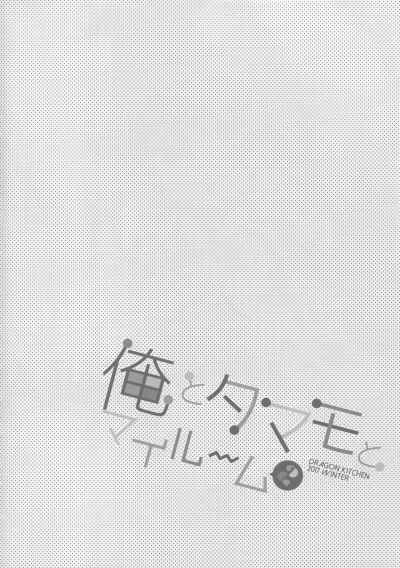 俺とタマモと
マイル～ム
DRAGON KITCHEN
2017 WINTER